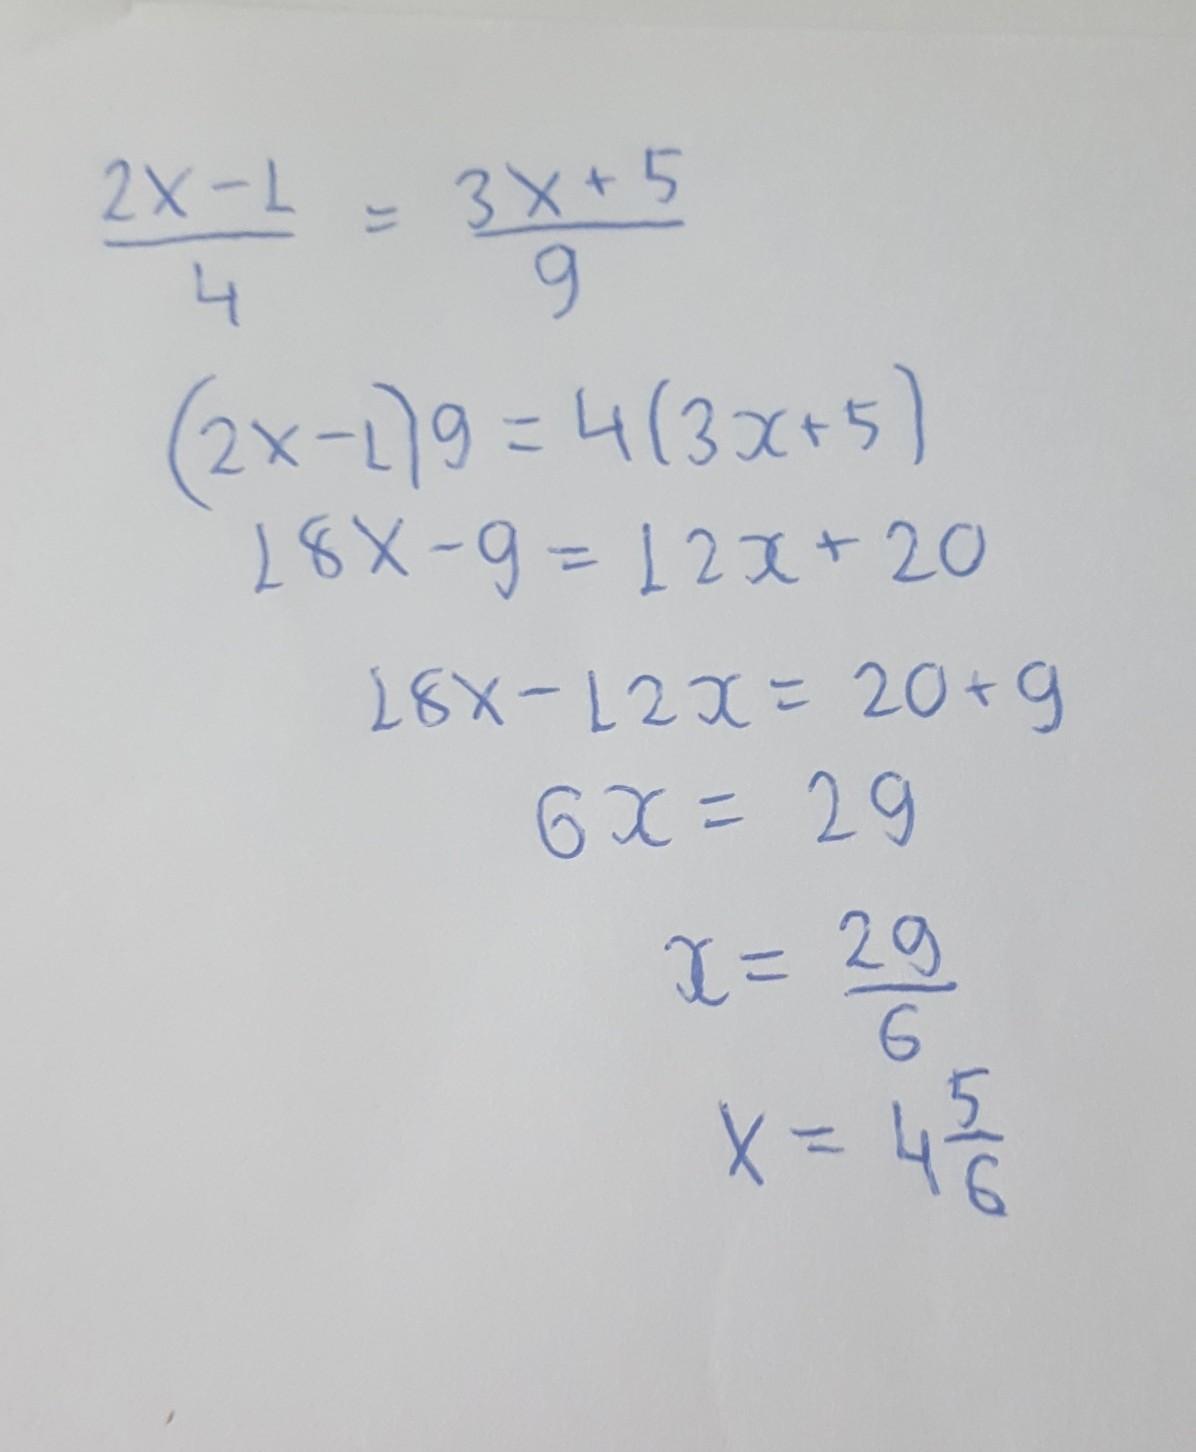 2x-1/4 = 3x+5/9
(2x-1)9=4(3x+5)
18x-9=12x+20
18x-12x=20+9
6x=29
x=29/6
x=4 5/6